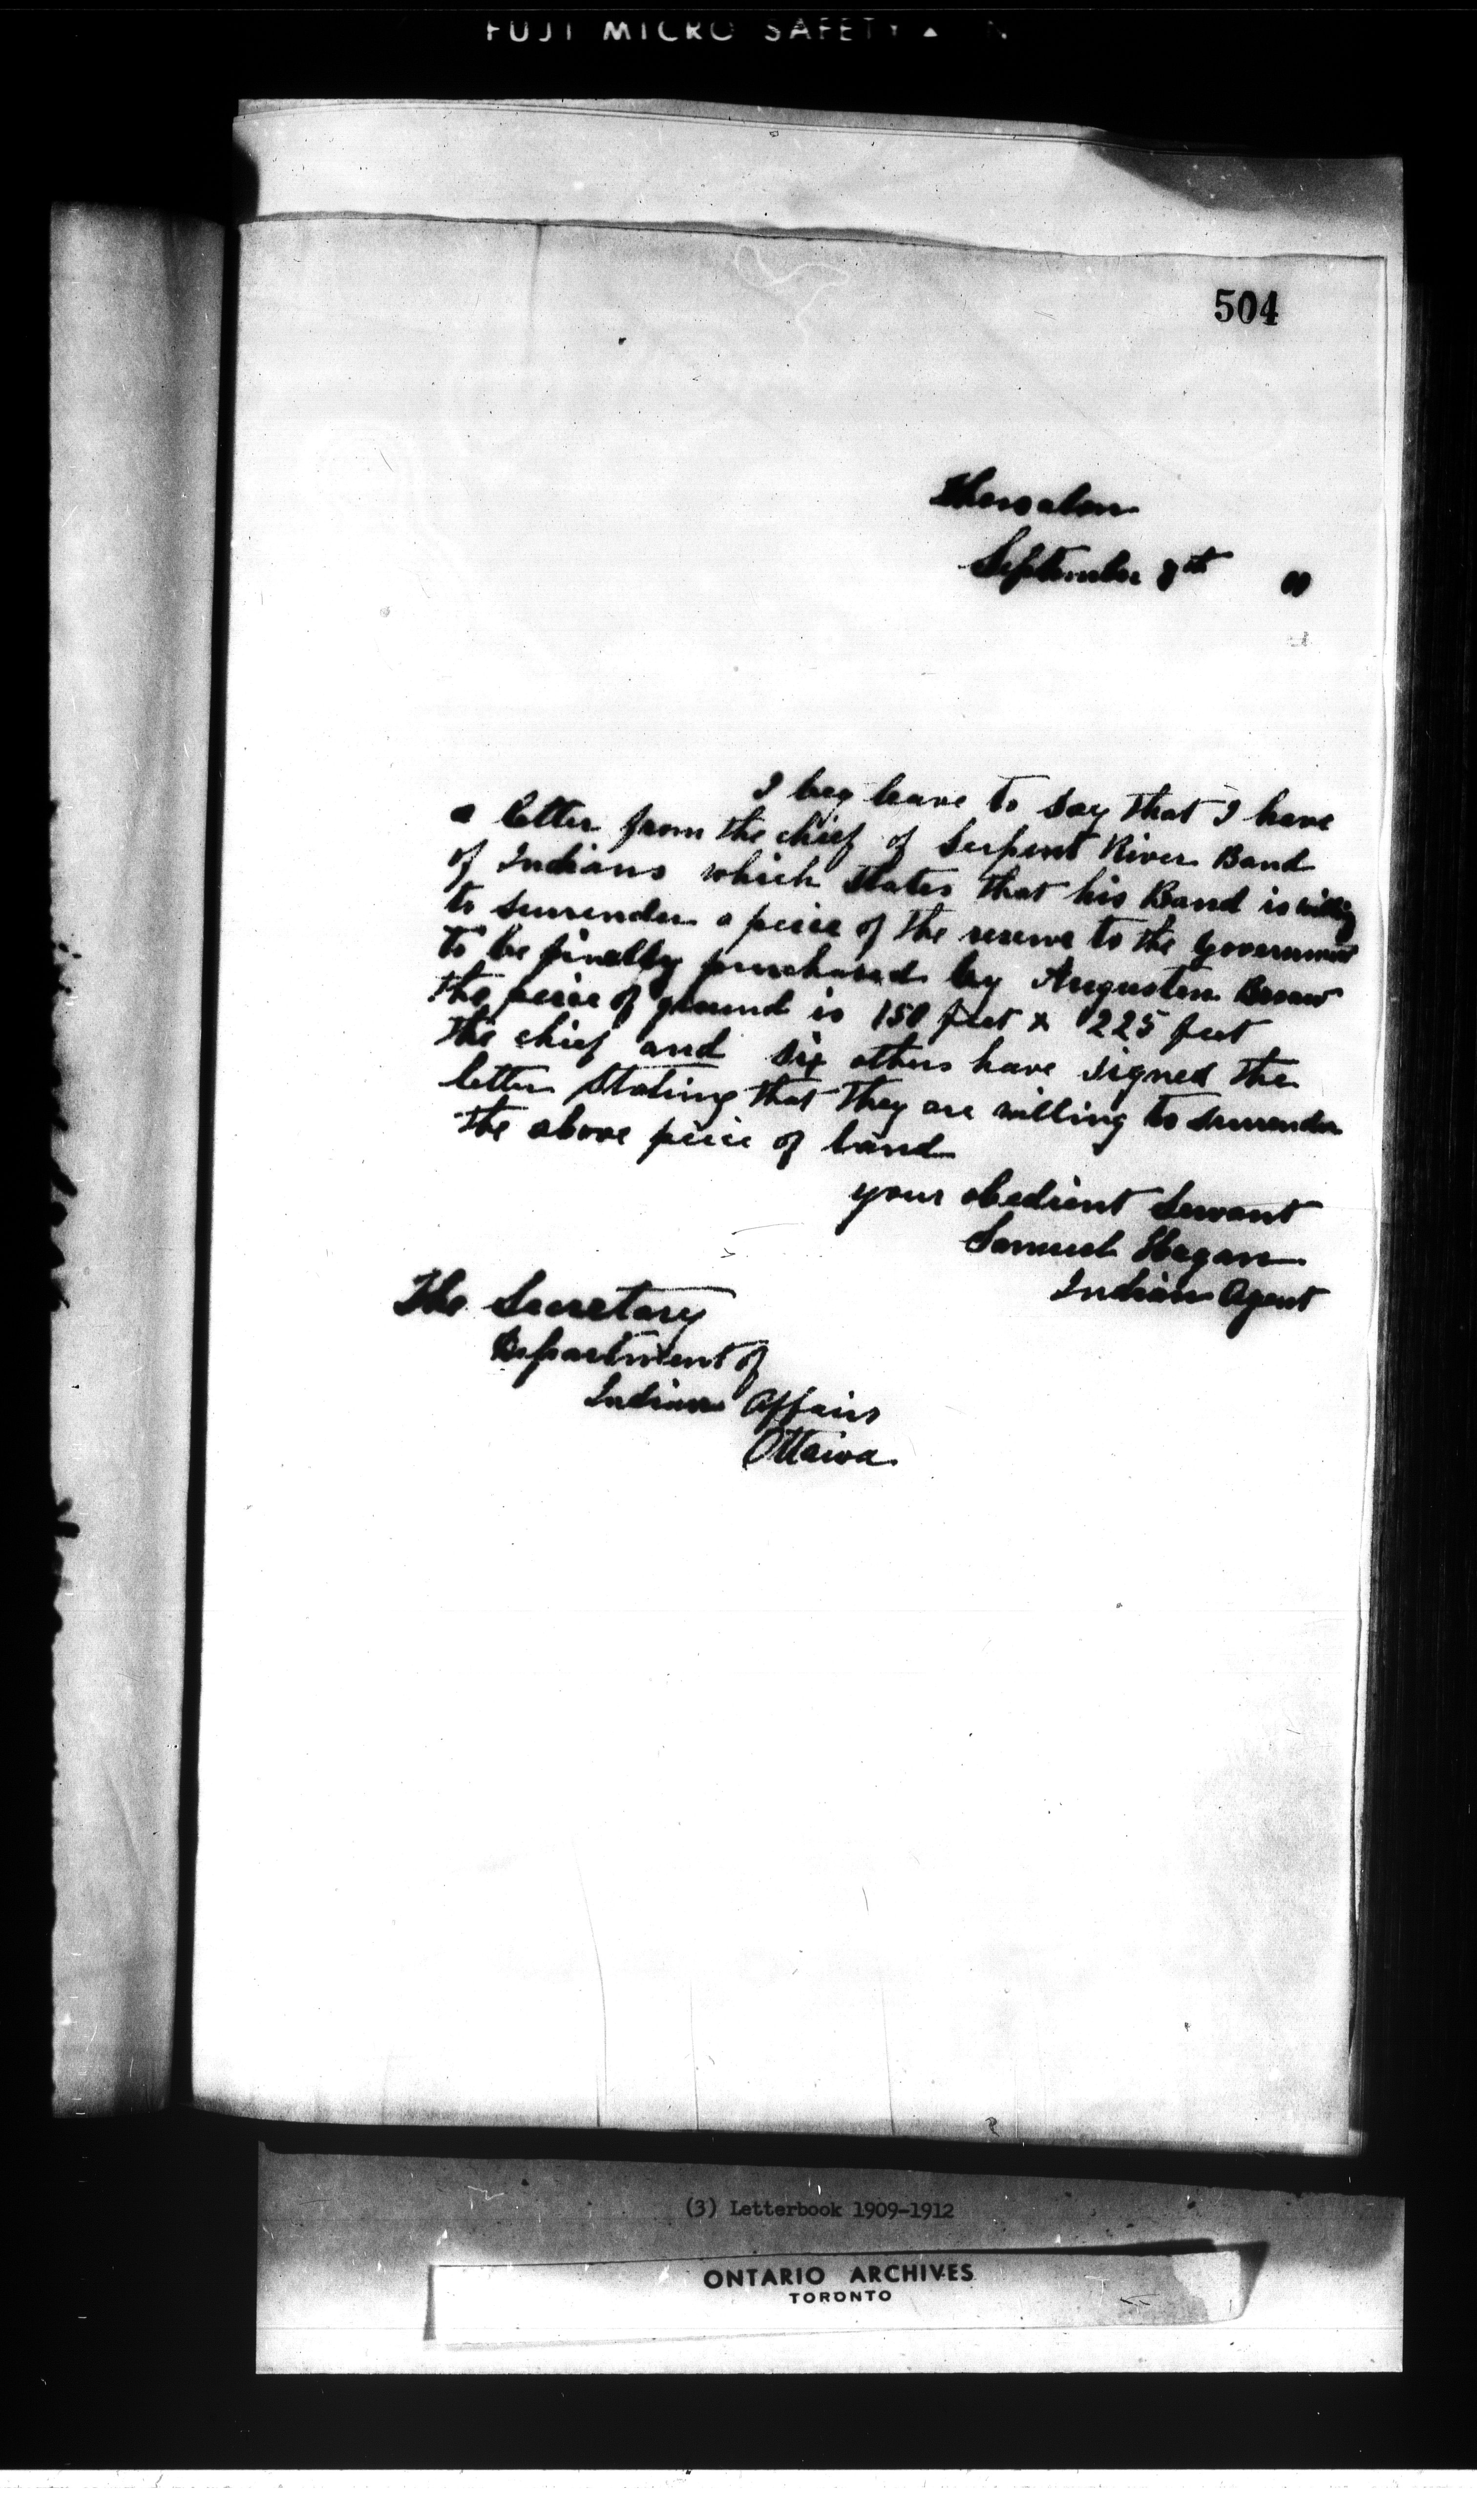 FUJI MICRO SAFETY
504
Thessalon
September 8th
I beg leave to say that I have
a letter from the chief of Serpent River Band
of Indians which states that his Band is willing
to surrender a peice of the reserve to the Government
to be finally purchased by Augustin
the peice of ground is 150 feet x 225 feet
the chief and six others have signed the
letter stating that they are willing to surrender
the above peice of land
your obedient Servant
Samuel Hagan
Indian Agent
The Secretary
Department of
Indian Affairs
Ottawa
(3) Letterbook 1909-1912
ONTARIO ARCHIVES
TORONTO